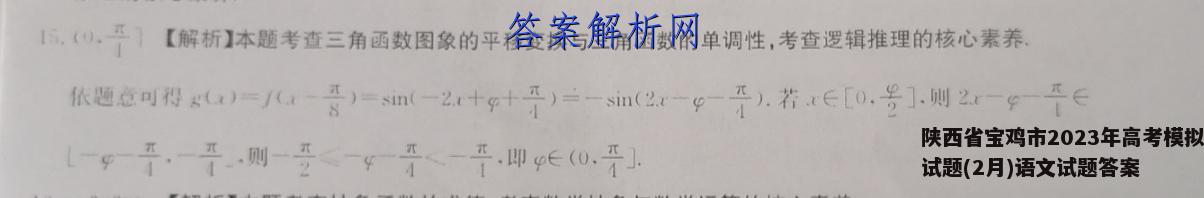 答案解析网
15.(0,π/4] 【解析】本题考查三角函数图象的平移变换与三角函数的单调性,考查逻辑推理的核心素养.
依题意可得 g(x)=f(x-π/8)=sin(-2x+φ+π/4)=-sin(2x-φ-π/4).若 x∈[0,φ/2],则 2x-φ-π/4∈
[-φ-π/4,-π/4],则-π/2≤-φ-π/4<-π/4,即 φ∈(0,π/4].
陕西省宝鸡市2023年高考模拟
试题(2月)语文试题答案